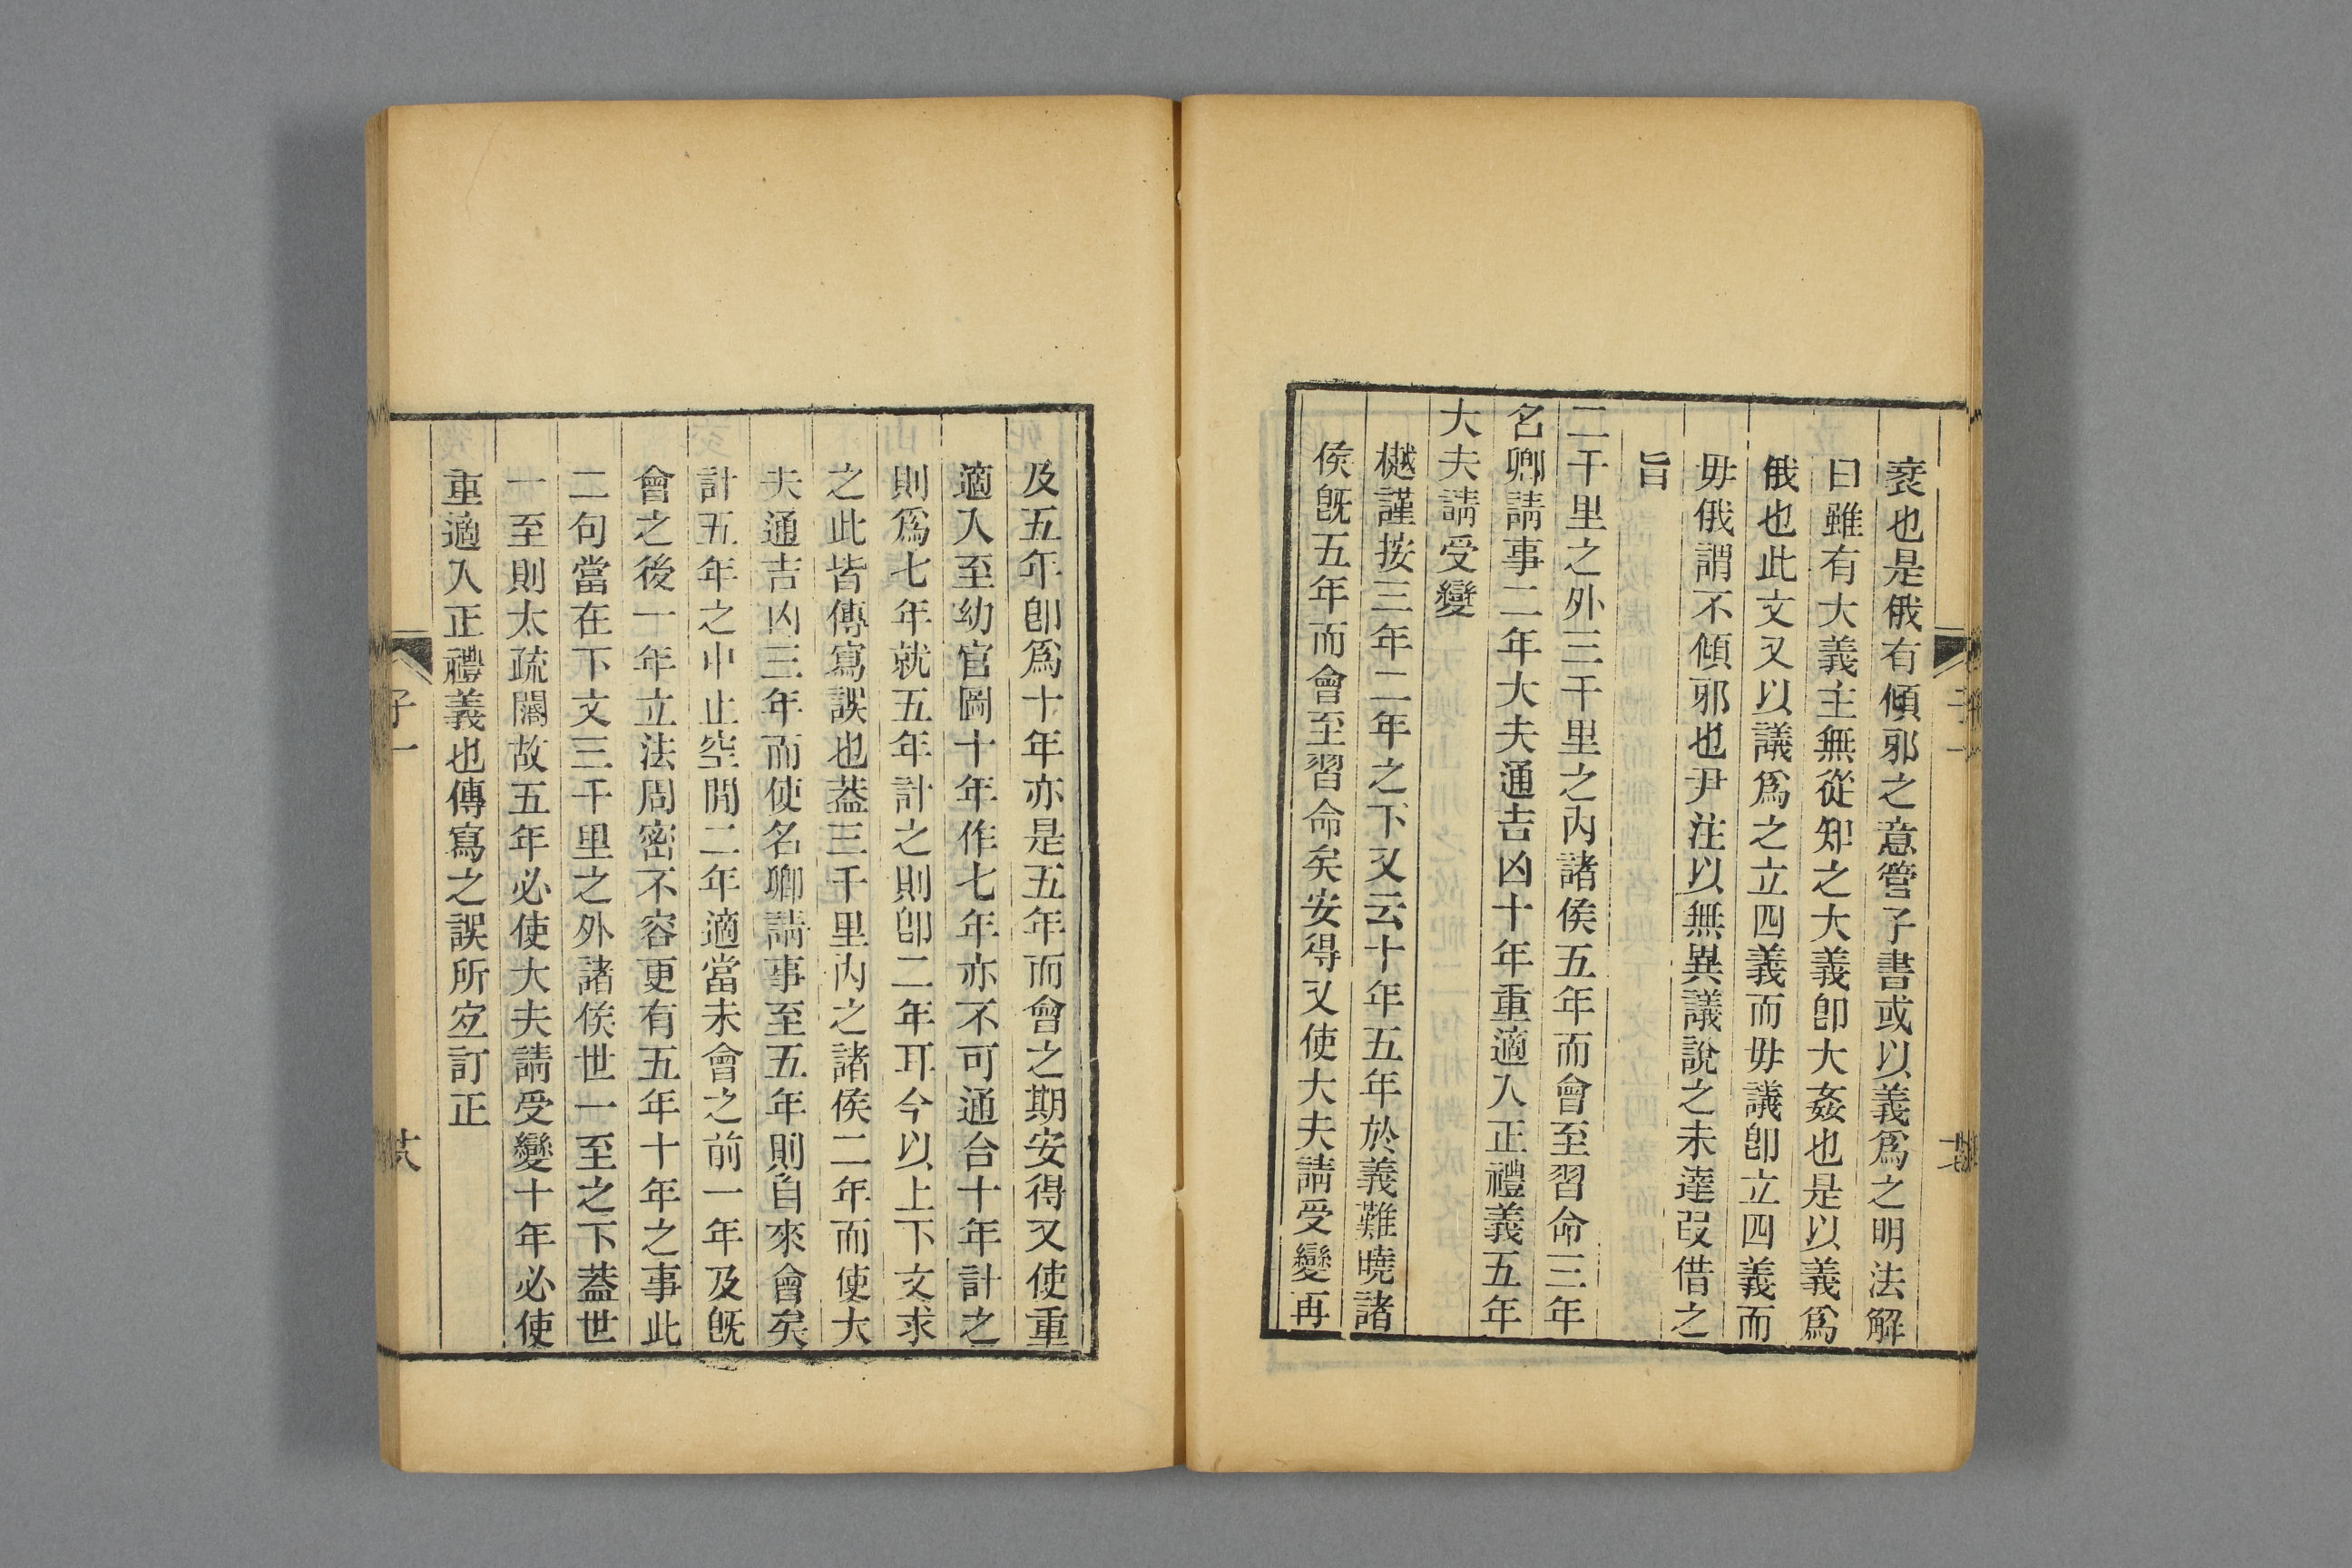 衺也是俄有傾邪之意管子書或以義爲之明法解
曰雖有大義主無從知之大義卽大姦也是以義爲
俄也此文又以議爲之立四義而毋議卽立四義而
毋俄謂不傾邪也尹注以無異議說之未達叚借之
旨
二千里之外三千里之內諸侯五年而會至習命三年
名卿請事二年大夫通吉凶十年重適入正禮義五年
大夫請受變
樾謹按三年二年之下又云十年五年於義難曉諸
侯旣五年而會至習命矣安得又使大夫請受變再
及五年卽爲十年亦是五年而會之期安得又使重
適入至幼官圖十年作七年亦不可通台十年計之
則爲七年就五年計之則卽二年耳今以上下文求
之此皆傳寫誤也葢三千里內之諸侯二年而使大
夫通吉凶三年而使名卿請事至五年則自來會矣
計五年之中止空閒二年適當未會之前一年及旣
會之後一年立法周密不容更有五年十年之事此
二句當在下文三千里之外諸侯世一至之下葢世
一至則太疏闊故五年必使大夫請受變十年必使
重適入正禮義也傳寫之誤所宐訂正
子一
廿六